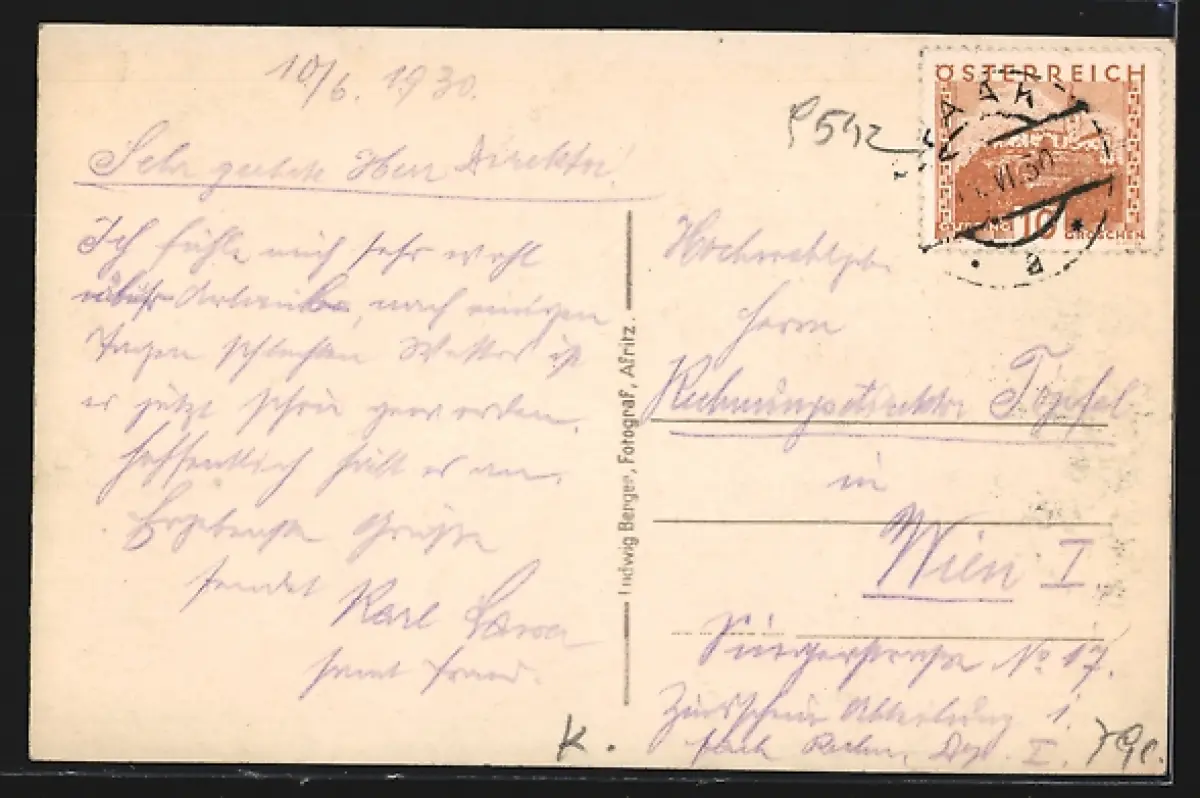 10/6. 1930.
Sehr geehrter Herr Direktor!
Ich fühle mich sehr wohl
nach einigen
Tagen schlechten Wetter ist
es jetzt schön geworden.
hoffentlich hält es an.
Ergebenste Grüsse
sendet Karl
samt Frau.
Ludwig Berger, Fotograf, Afritz.
ÖSTERREICH
VI.30
10
GÜSSING
GROSCHEN
a
Hochwohlgeb.
Herrn
Rechnungsdirektor Töpfel
in
Wien I.
No 17.
Abteilung 1.
K.